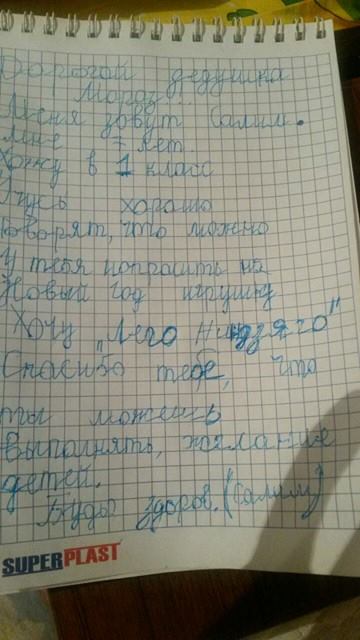 Дорогой дедушка
Мороз!
Меня зовут Салим.
мне 7 лет.
Хожу в 1 класс
Учусь хорошо
Говорят, что можно
у тебя попросить на
Новый год игрушку
Хочу „Лего Ниндзяго"
Спасибо тебе, что
ты можешь
выполнять, желание
детей.
Будь здоров. (Салим)
SUPERPLAST